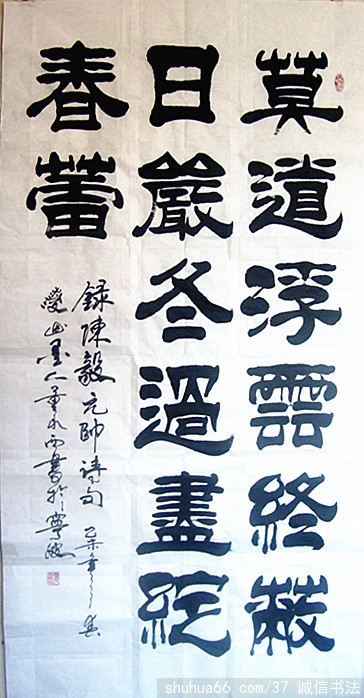 莫道浮雲終蔽
日嚴冬過盡綻
春蕾
録陳毅元帥詩句 乙未年
書於寧波
shuhua66.com/37 诚信书法